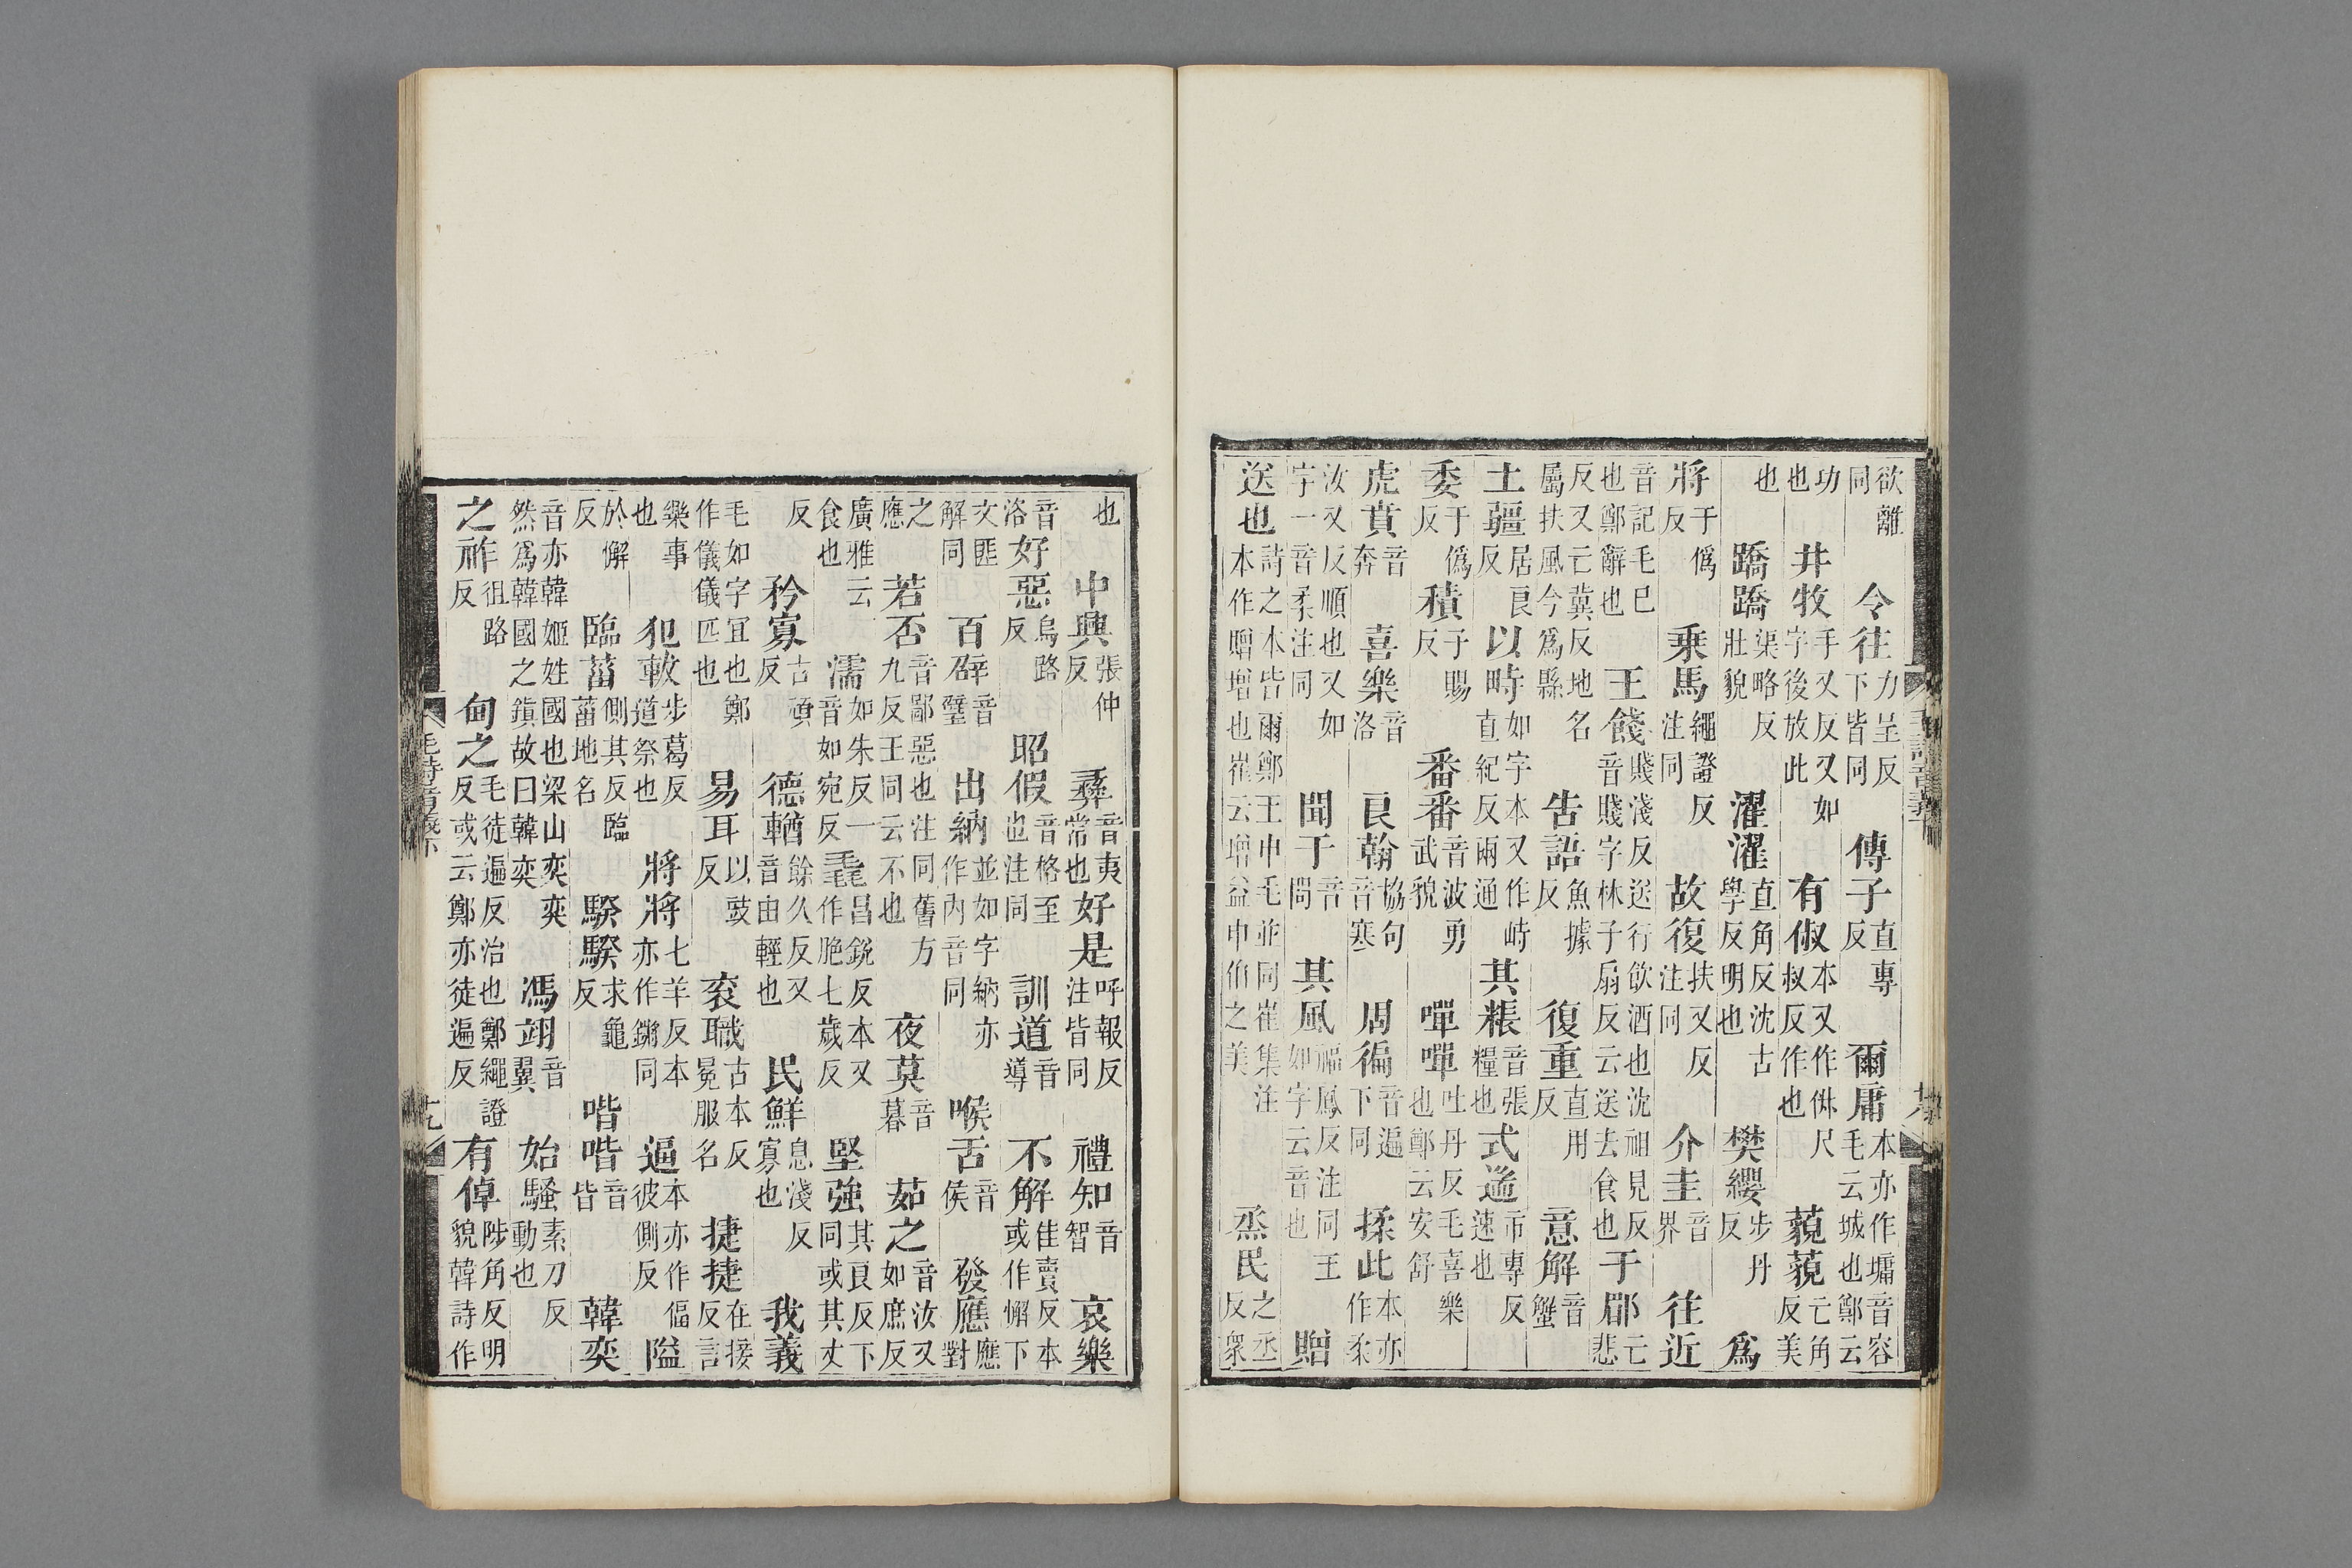 欲離同令往力呈反下皆同傳子直專反爾庸本亦作墉音容毛云城也鄭云
功也井牧手又反又如字後放此有俶本又作尺叔反作也藐藐亡角反美
也蹻蹻渠略反壯貌濯濯直角反沈古學反明也樊纓步丹反爲
將于僞反乗馬繩證反注同故復扶又反注同介圭音界往近
音記毛巳也鄭辭也王餞賤淺反送行飲酒也沈祖見反音賤字林子扇反云送去食也于郿亡悲
反又亡冀反地名屬扶風今爲縣告語魚據反復重直用反意解音蟹
土疆居良反以時如字本又作峙直紀反兩通其粻音張糧也式遄市專反速也
委于僞反積子賜反番番音波勇武貌嘽嘽吐丹反毛喜樂也鄭云安舒
虎賁音奔喜樂音洛良翰協句音寒周徧音遍下同揉此本亦作柔
汝又反順也又如字一音柔注同聞于音問其風福鳳反注同王如字云音也贈
送也詩之本皆爾鄭王申毛並同崔集注本作贈增也崔云增益申伯之美烝民之丞反衆
也中興張仲反彝音夷常也好是呼報反注皆同禮知音智哀樂
音洛好惡烏路反昭假音格至也注同訓道音導不解佳賣反本或作懈下
文匪解同百辟音璧出納並如字納亦作内音同喉舌音侯發應應對
之應若否音鄙惡也注同舊方九反王同云不也夜莫音暮茹之音汝又如庶反
廣雅云食也濡如朱反一音如宛反毳昌銳反本又作脃七歲反堅強其良反下同或其丈
反矜寡古頑反德輶餘久反又音由輕也民鮮息淺反寡也我義
毛如字宜也鄭作儀儀匹也易耳以豉反衮職古本反冕服名捷捷在接反言
樂事也犯軷步葛反道祭也將將七羊反本亦作鏘同逼本亦作偪彼側反隘
於懈反臨菑側其反臨菑地名騤騤求龜反喈喈音皆韓奕
音亦韓姬姓國也梁山奕奕然爲韓國之鎮故曰韓奕馮翊音翼始騷素刀反動也
之祚徂路反甸之毛徒遍反治也鄭繩證反或云鄭亦徒遍反有倬陟角反明貌韓詩作
毛詩音義下
十九